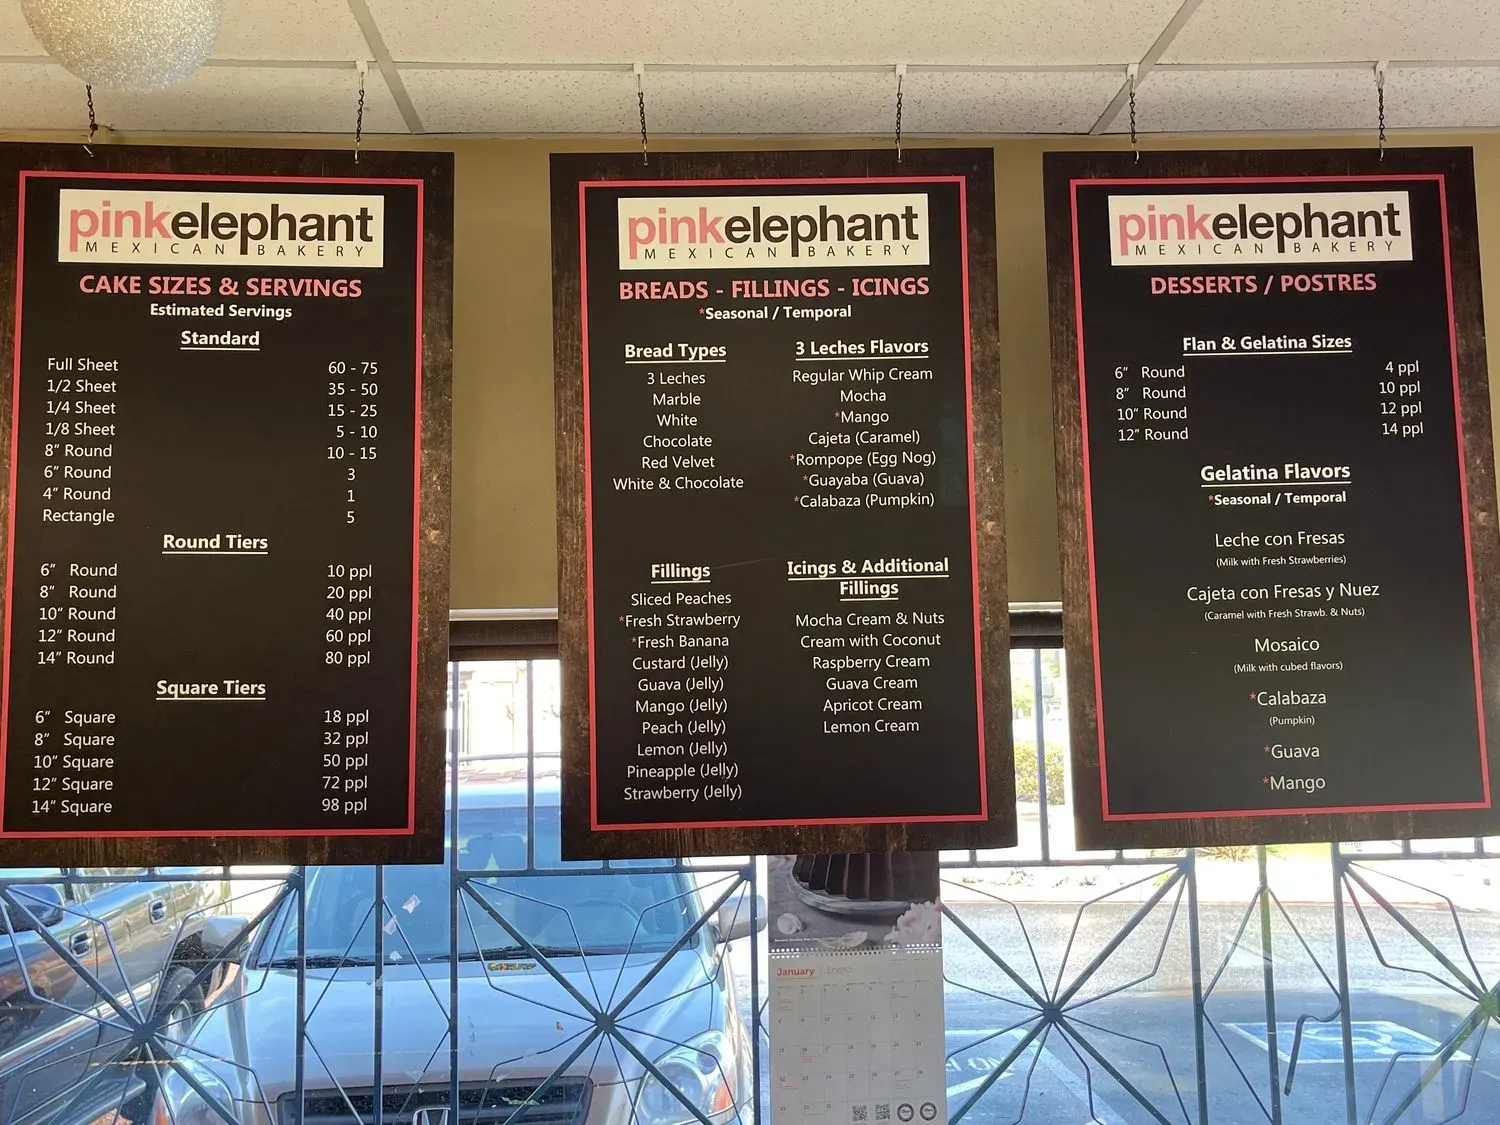 pinkelephant
MEXICAN BAKERY
CAKE SIZES & SERVINGS
Estimated Servings
Standard
Full Sheet 60 - 75
1/2 Sheet 35 - 50
1/4 Sheet 15 - 25
1/8 Sheet 5 - 10
8" Round 10 - 15
6" Round 3
4" Round 1
Rectangle 5
Round Tiers
6" Round 10 ppl
8" Round 20 ppl
10" Round 40 ppl
12" Round 60 ppl
14" Round 80 ppl
Square Tiers
6" Square 18 ppl
8" Square 32 ppl
10" Square 50 ppl
12" Square 72 ppl
14" Square 98 ppl
pinkelephant
MEXICAN BAKERY
BREADS - FILLINGS - ICINGS
*Seasonal / Temporal
Bread Types
3 Leches
Marble
White
Chocolate
Red Velvet
White & Chocolate
3 Leches Flavors
Regular Whip Cream
Mocha
*Mango
Cajeta (Caramel)
*Rompope (Egg Nog)
*Guayaba (Guava)
*Calabaza (Pumpkin)
Fillings
Sliced Peaches
*Fresh Strawberry
*Fresh Banana
Custard (Jelly)
Guava (Jelly)
Mango (Jelly)
Peach (Jelly)
Lemon (Jelly)
Pineapple (Jelly)
Strawberry (Jelly)
Icings & Additional
Fillings
Mocha Cream & Nuts
Cream with Coconut
Raspberry Cream
Guava Cream
Apricot Cream
Lemon Cream
pinkelephant
MEXICAN BAKERY
DESSERTS / POSTRES
Flan & Gelatina Sizes
6" Round 4 ppl
8" Round 10 ppl
10" Round 12 ppl
12" Round 14 ppl
Gelatina Flavors
*Seasonal / Temporal
Leche con Fresas
(Milk with Fresh Strawberries)
Cajeta con Fresas y Nuez
(Caramel with Fresh Strawb. & Nuts)
Mosaico
(Milk with cubed flavors)
*Calabaza
(Pumpkin)
*Guava
*Mango
January | Enero